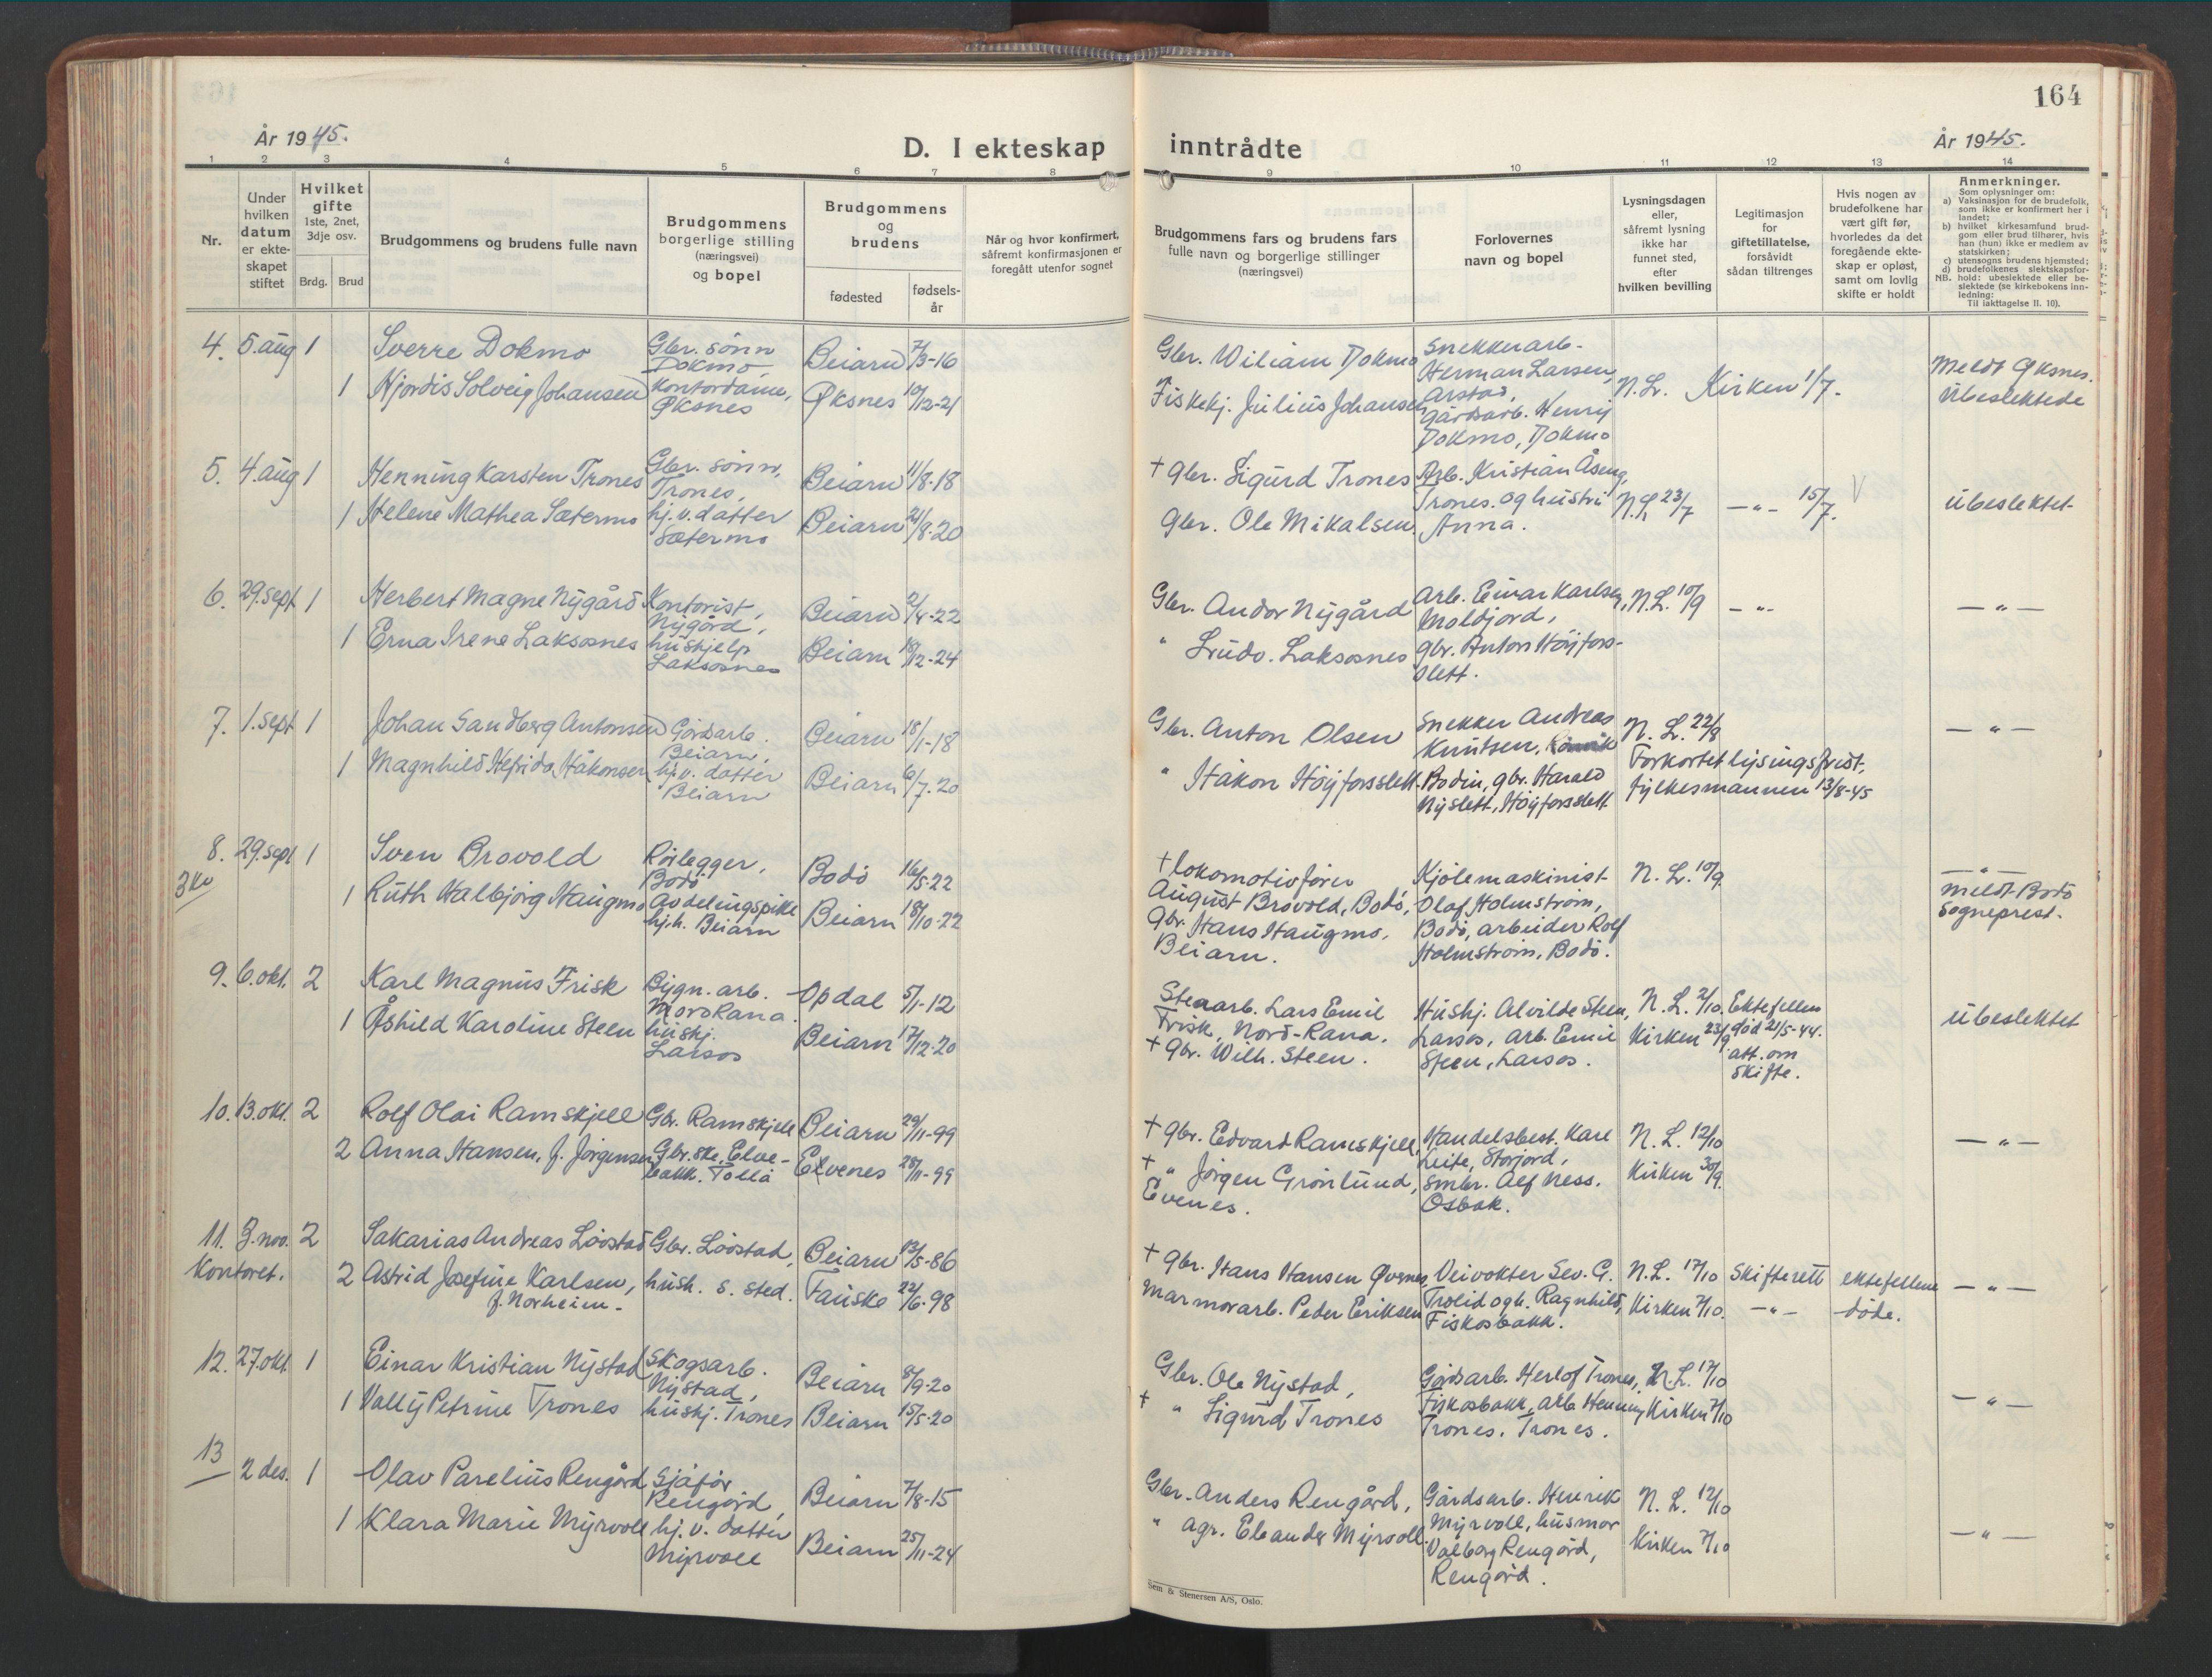 164
År 1945.
D. I ekteskap inntrådte
År 1945.
1 2 3 4 5 6 7 8 9 10 11 12 13 14
Nr.
Under hvilken datum er ekteskapet stiftet
Hvilket gifte 1ste, 2net, 3dje osv.
Brdg. Brud
Brudgommens og brudens fulle navn
Brudgommens borgerlige stilling (næringsvei) og bopel
Brudgommens og brudens
fødested
fødselsår
Når og hvor konfirmert, såfremt konfirmasjonen er foregått utenfor sognet
Brudgommens fars og brudens fars fulle navn og borgerlige stillinger (næringsvei)
Forlovernes navn og bopel
Lysningsdagen eller, såfremt lysning ikke har funnet sted, efter hvilken bevilling
Legitimasjon for giftetillatelse, forsåvidt sådan tiltrenges
Hvis nogen av brudefolkene har vært gift før, hvorledes da det foregående ekteskap er opløst, samt om lovlig skifte er holdt
Anmerkninger.
Som oplysninger om:
a) Vaksinasjon for de brudefolk, som ikke er konfirmert her i landet;
b) hvilket kirkesamfund brudgom eller brud tilhører, hvis han (hun) ikke er medlem av statskirken;
c) utensogns brudens hjemsted;
d) brudefolkenes slektskapsforhold: ubeslektede eller beslektede (se kirkebokens innledning:
NB. Til iakttagelse II. 10).
4. 5. aug 1 Sverre Dokmo Gbr. sønn Dokmo Beiarn 7/3-16
1 Hjordis Solveig Johansen Kontordame, Øksnes Øksnes 10/12-21
Gbr. Wiliam Dokmo
Fiskekj. Julius Johansen
Snekkerarb. Herman Larsen, Arstad, gårdsarb. Henry Dokmo, Dokmo
N.L. Kirken 1/7.
Meldt Øksnes. Ubeslektede
5. 4. aug 1 Henning Karsten Trones Gbr. sønn, Trones, Beiarn 11/8-18
1 Helene Mathea Sætermo hj. v. datter Sætermo Beiarn 21/8-20
+ gbr. Sigurd Trones
Gbr. Ole Mikalsen
Arb. Kristian Åseng, Trones. og hustru Anna.
N.L. 23/7 —"— 15/7.
Ubeslektet
6. 29. sept 1 Herbert Magne Nygård Kontorist, Nygård, Beiarn 2/4-22
1 Erna Irene Laksosnes hushjelp Laksosnes Beiarn 10/12-24
Gbr. Andor Nygård
" Ludv. Laksosnes
Arb. Einar Karlsen, Moldjord, gbr. Anton Høyforsslett.
N.L. 10/9 —"—
—"—
7. 1. sept 1 Johan Sandberg Antonsen Gårdsarb. Beiarn, Beiarn 18/1-18
1 Magnhild Hefrida Håkonsen hj. v. datter Beiarn Beiarn 6/7-20
Gbr. Anton Olsen
" Håkon Høyforsslett.
Snekker Andreas Knutsen, Bodin, gbr. Harald Nyslett, Høyforsslett
N. L. 22/8 Forkortet lysingsfrist, fylkesmannen 13/8-45
—"—
8. 29. sept 1 Sven Brovold Rørlegger, Bodø Bodø 16/5-22
1 Ruth Halbjørg Haugmo Avdelingspike hj.h. Beiarn Beiarn 18/10-22
+ lokomotivfører August Brovold, Bodø,
gbr. Hans Haugmo, Beiarn.
Kjølemaskinist Olaf Holmstrøm, Bodø, arbeider Rolf Holmstrøm, Bodø.
N. L. 10/9.
—"—
meldt Bodø Sogneprest.
9. 6. okt. 2 Karl Magnus Frisk Bygn. arb. Nord Rana. Opdal 5/1-12
1 Åshild Karoline Steen hushj. Larsos Beiarn 17/12-20
Stenarb. Lars Emil Frisk, Nord-Rana.
+ gbr. Wilh. Steen.
Hushj. Alvilde Steen, Larsos, arb. Emil Steen, Larsos.
N. L. 2/10. Kirken 23/9
Ektefellen død 21/5-44. att. om skifte.
Ubeslektet
10. 13. okt. 2 Rolf Olai Ramskjell Gbr. Ramskjell Beiarn 29/11-99
2 Anna Hansen, f. Jørgensen Gbr.ske. Elvebakk. Tollå Evenes 28/11-99
+ gbr. Edvard Ramskjell,
+ " Jørgen Grønlund, Evenes.
Handelsbest. Kare Leite, Storjord, Smbr. Alf Ness. Osbak.
N. L. 12/10 Kirken 30/9.
—"—
11. 3. nov. 2 Sakarias Andreas Løvstad Gbr. Løvstad, Beiarn 13/5-86
Kontoret.
2 Astrid Josefine Karlsen, f. Norheim. hush. s. sted. Fauske 22/6-98
+ gbr. Hans Hansen Øvenes,
Marmorarb. Peder Eriksen
Veivokter Sev. G. Trolid og h. Ragnhild, Fiskosbakk.
N.L. 17/10 Kirken 7/10.
Skifterett —"—
ektefellene døde.
—"—
12. 27. okt. 1 Einar Kristian Nystad Skogsarb. Nystad, Beiarn 8/9-20
1 Vally Petrine Trones hushj. Trones Beiarn 15/5-20
Gbr. Ole Nystad,
+ " Sigurd Trones
Gårdsarb. Herlof Trones, Fiskosbakk, arb. Henning Trones, Trones.
N.L. 17/10 Kirken 7/10
—"—
13 2 des. 1 Olav Parelius Rengård Sjåfør Rengård, Beiarn 7/8-15
1 Klara Marie Myrvoll hj. v. datter Myrvoll Beiarn 25/11-24
Gbr. Anders Rengård,
" agr. Eleander Myrvoll.
Gårdsarb. Henrik Myrvoll, husmor Valborg Rengård, Rengård.
N. L. 12/10 Kirken 7/10
—"—
Sem & Stenersen A/S, Oslo.